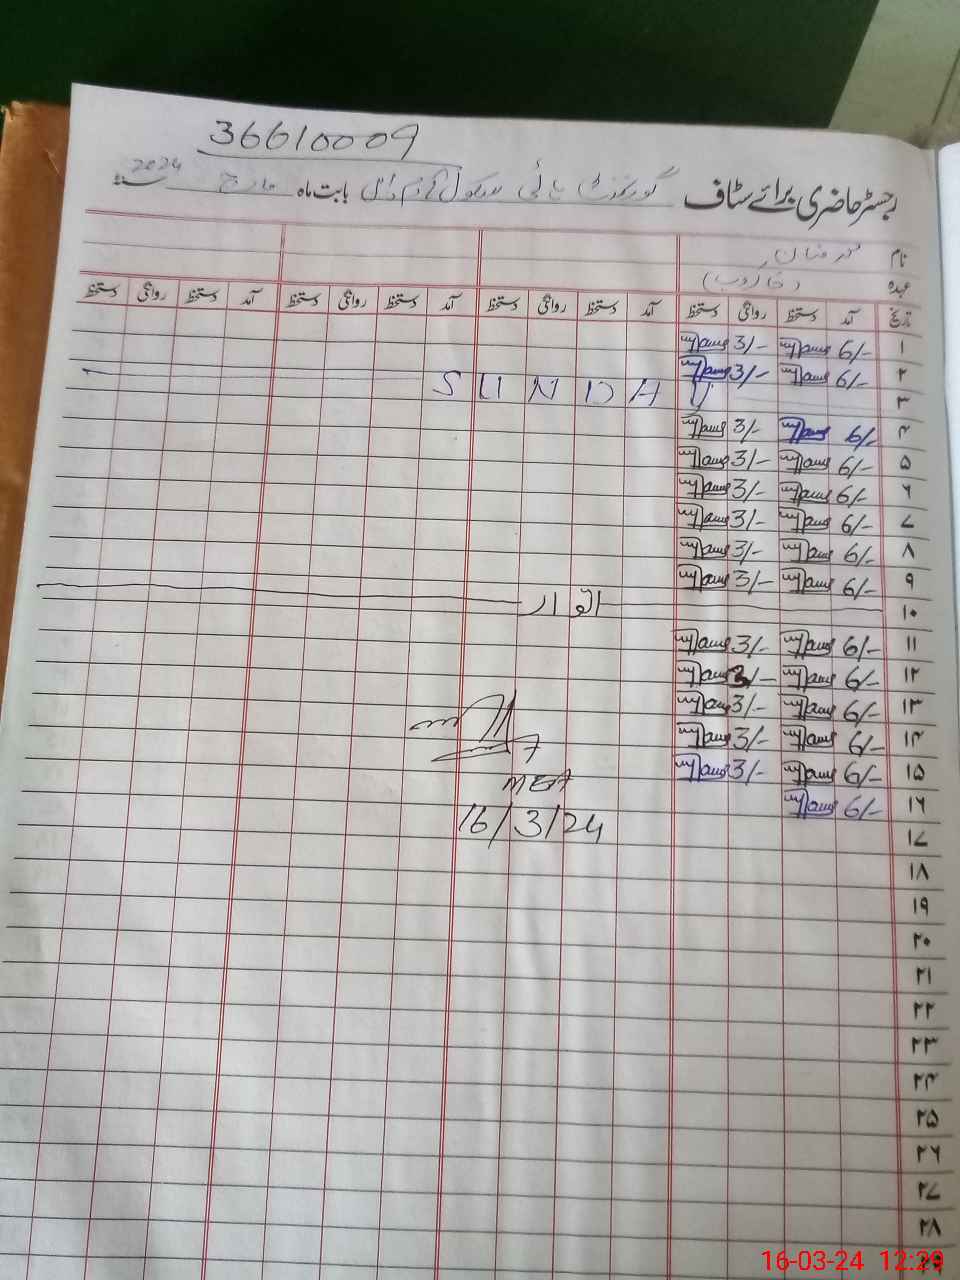 36610009
رجسٹر حاضری برائے سٹاف گورنمنٹ ہائی سکول بابت ماہ مارچ سنہ 2024
نام
عہدہ (خاکروب)
تاریخ آمد دستخط روانگی دستخط آمد دستخط روانگی دستخط آمد دستخط روانگی دستخط
۱ 6/- 3/-
۲ 6/- 3/-
۳ SUNDAY
۴ 6/- 3/-
۵ 6/- 3/-
۶ 6/- 3/-
۷ 6/- 3/-
۸ 6/- 3/-
۹ 6/- 3/-
۱۰ اتوار
۱۱ 6/- 3/-
۱۲ 6/- 3/-
۱۳ 6/- 3/-
۱۴ 6/- 3/-
۱۵ 6/- 3/-
MEA
۱۶ 6/-
16/3/24
۱۷
۱۸
۱۹
۲۰
۲۱
۲۲
۲۳
۲۴
۲۵
۲۶
۲۷
۲۸
۲۹
16-03-24 12:29